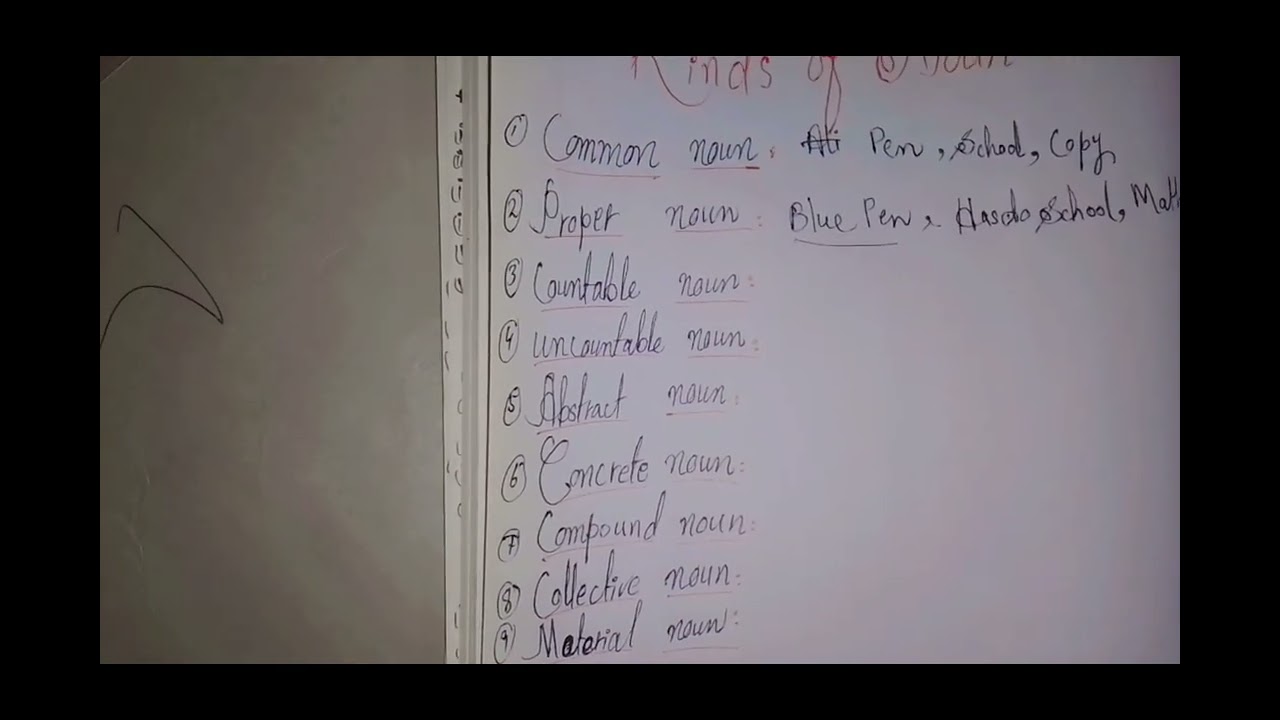 Kinds of Noun
① Common noun: Ali Pen, School, Copy,
② Proper noun: Blue Pen, School,
③ Countable noun:
④ uncountable noun:
⑤ Abstract noun:
⑥ Concrete noun:
⑦ Compound noun:
⑧ Collective noun:
⑨ Material noun: